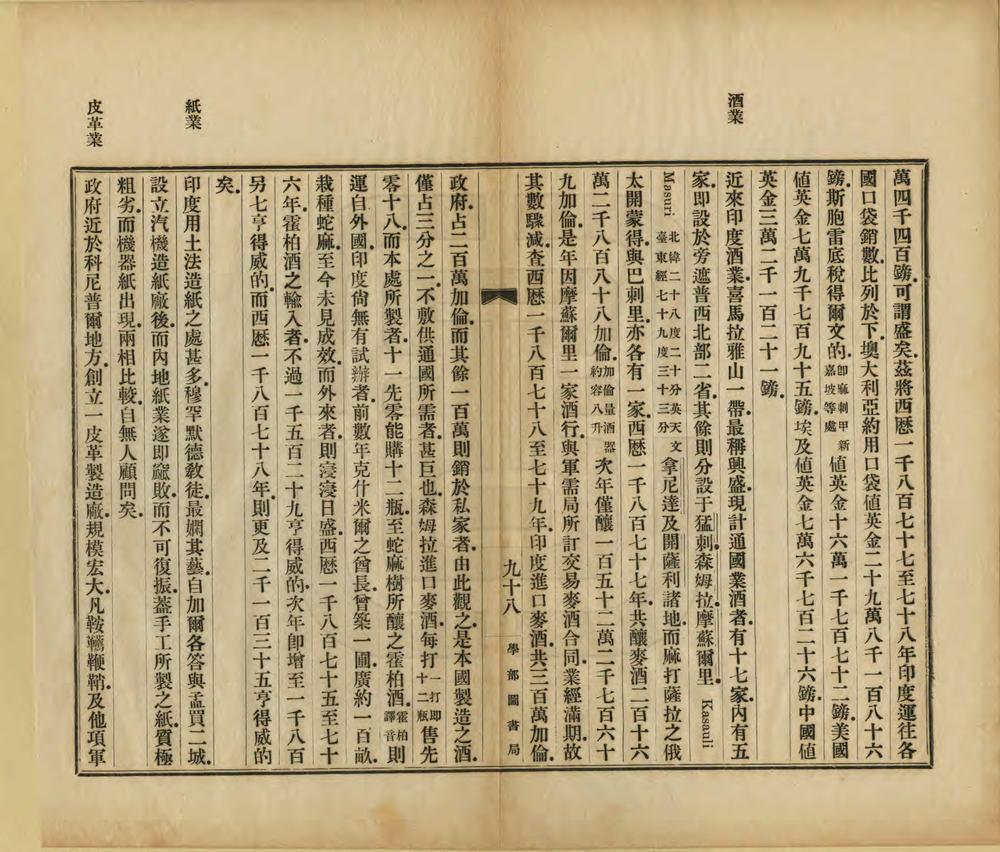 酒業
紙業
皮革業
萬四千四百鎊可謂盛矣茲將西厯一千八百七十七至七十八年印度運往各
國口袋銷數比列於下墺大利亞約用口袋値英金二十九萬八千一百八十六
鎊斯胞雷底稅得爾文的卽麻剌甲新嘉坡等處値英金十六萬一千七百七十二鎊美國
値英金七萬九千七百九十五鎊埃及値英金七萬六千七百二十六鎊中國値
英金三萬二千一百二十一鎊
近來印度酒業喜馬拉雅山一帶最稱興盛現計通國業酒者有十七家內有五
家卽設於旁遮普西北部二省其餘則分設于猛剌森姆拉摩蘇爾里 Kasauli
Masuri 北緯二十八度二十分英天文臺東經七十九度三十三分 拿尼達及開薩利諸地而麻打薩拉之俄
太開蒙得與巴刺里亦各有一家西厯一千八百七十七年共釀麥酒二百十六
萬二千八百八十八加倫加倫量酒器約容八升次年僅釀一百五十二萬二千七百六十
九加倫是年因摩蘇爾里一家酒行與軍需局所訂交易麥酒合同業經滿期故
其數驟減查西厯一千八百七十八至七十九年印度進口麥酒共三百萬加倫
九十八 學部圖書局
政府占二百萬加倫而其餘一百萬則銷於私家者由此觀之是本國製造之酒
僅占三分之一不敷供通國所需者甚巨也森姆拉進口麥酒每打一打卽十二瓶售先
零十八而本處所製者十一先零能購十二瓶至蛇麻樹所釀之霍柏酒霍柏譯音則
運自外國印度尙無有試辦者前數年克什米爾之酋長曾築一圃廣約一百畝
栽種蛇麻至今未見成效而外來者則寖寖日盛西厯一千八百七十五至七十
六年霍柏酒之輸入者不過一千五百二十九亨得威的次年卽增至一千八百
另七亨得威的而西厯一千八百七十八年則更及二千一百三十五亨得威的
矣
印度用土法造紙之處甚多穆罕默德敎徒最嫻其藝自加爾各答與孟買二城
設立汽機造紙廠後而內地紙業遂卽竄敗而不可復振蓋手工所製之紙質極
粗劣而機器紙出現兩相比較自無人顧問矣
政府近於科尼普爾地方創立一皮革製造廠規模宏大凡鞍韉鞭鞘及他項軍